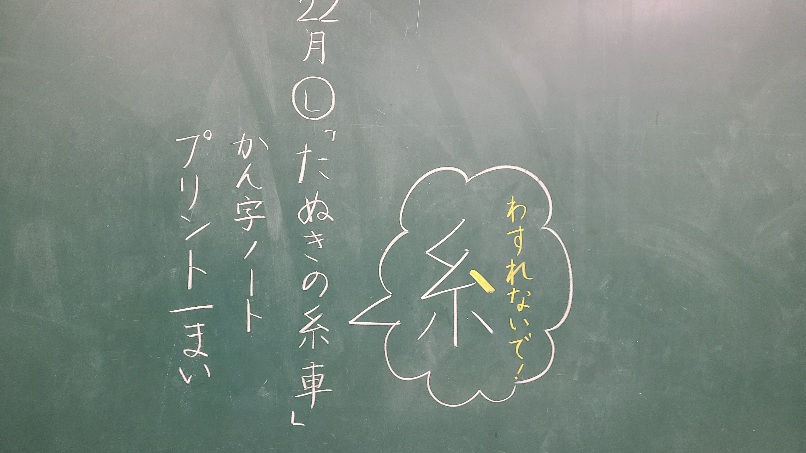 わすれないで！
糸
22月Ⓛ「たぬきの糸車」
かん字ノート
プリント一まい